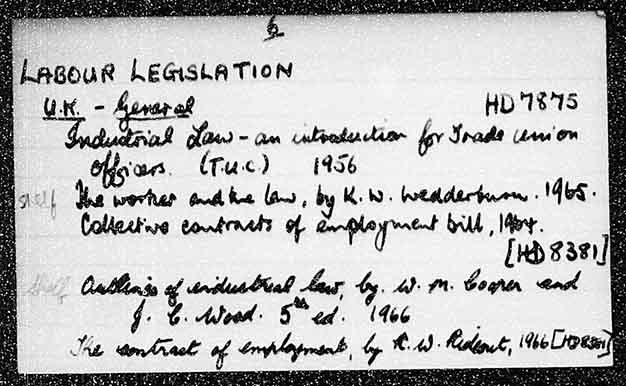 6
LABOUR LEGISLATION
U.K. - General HD7875
Industrial Law - an introduction for Trade Union
Officers. (T.U.C.) 1956
shelf The worker and the law, by K. W. Wedderburn. 1965.
Collective contracts of employment bill, 1964.
[HD 8381]
shelf Outlines of industrial law, by W. M. Cooper and
J. C. Wood. 5th ed. 1966
The contract of employment, by R. W. Rideout, 1966 [HD8381]